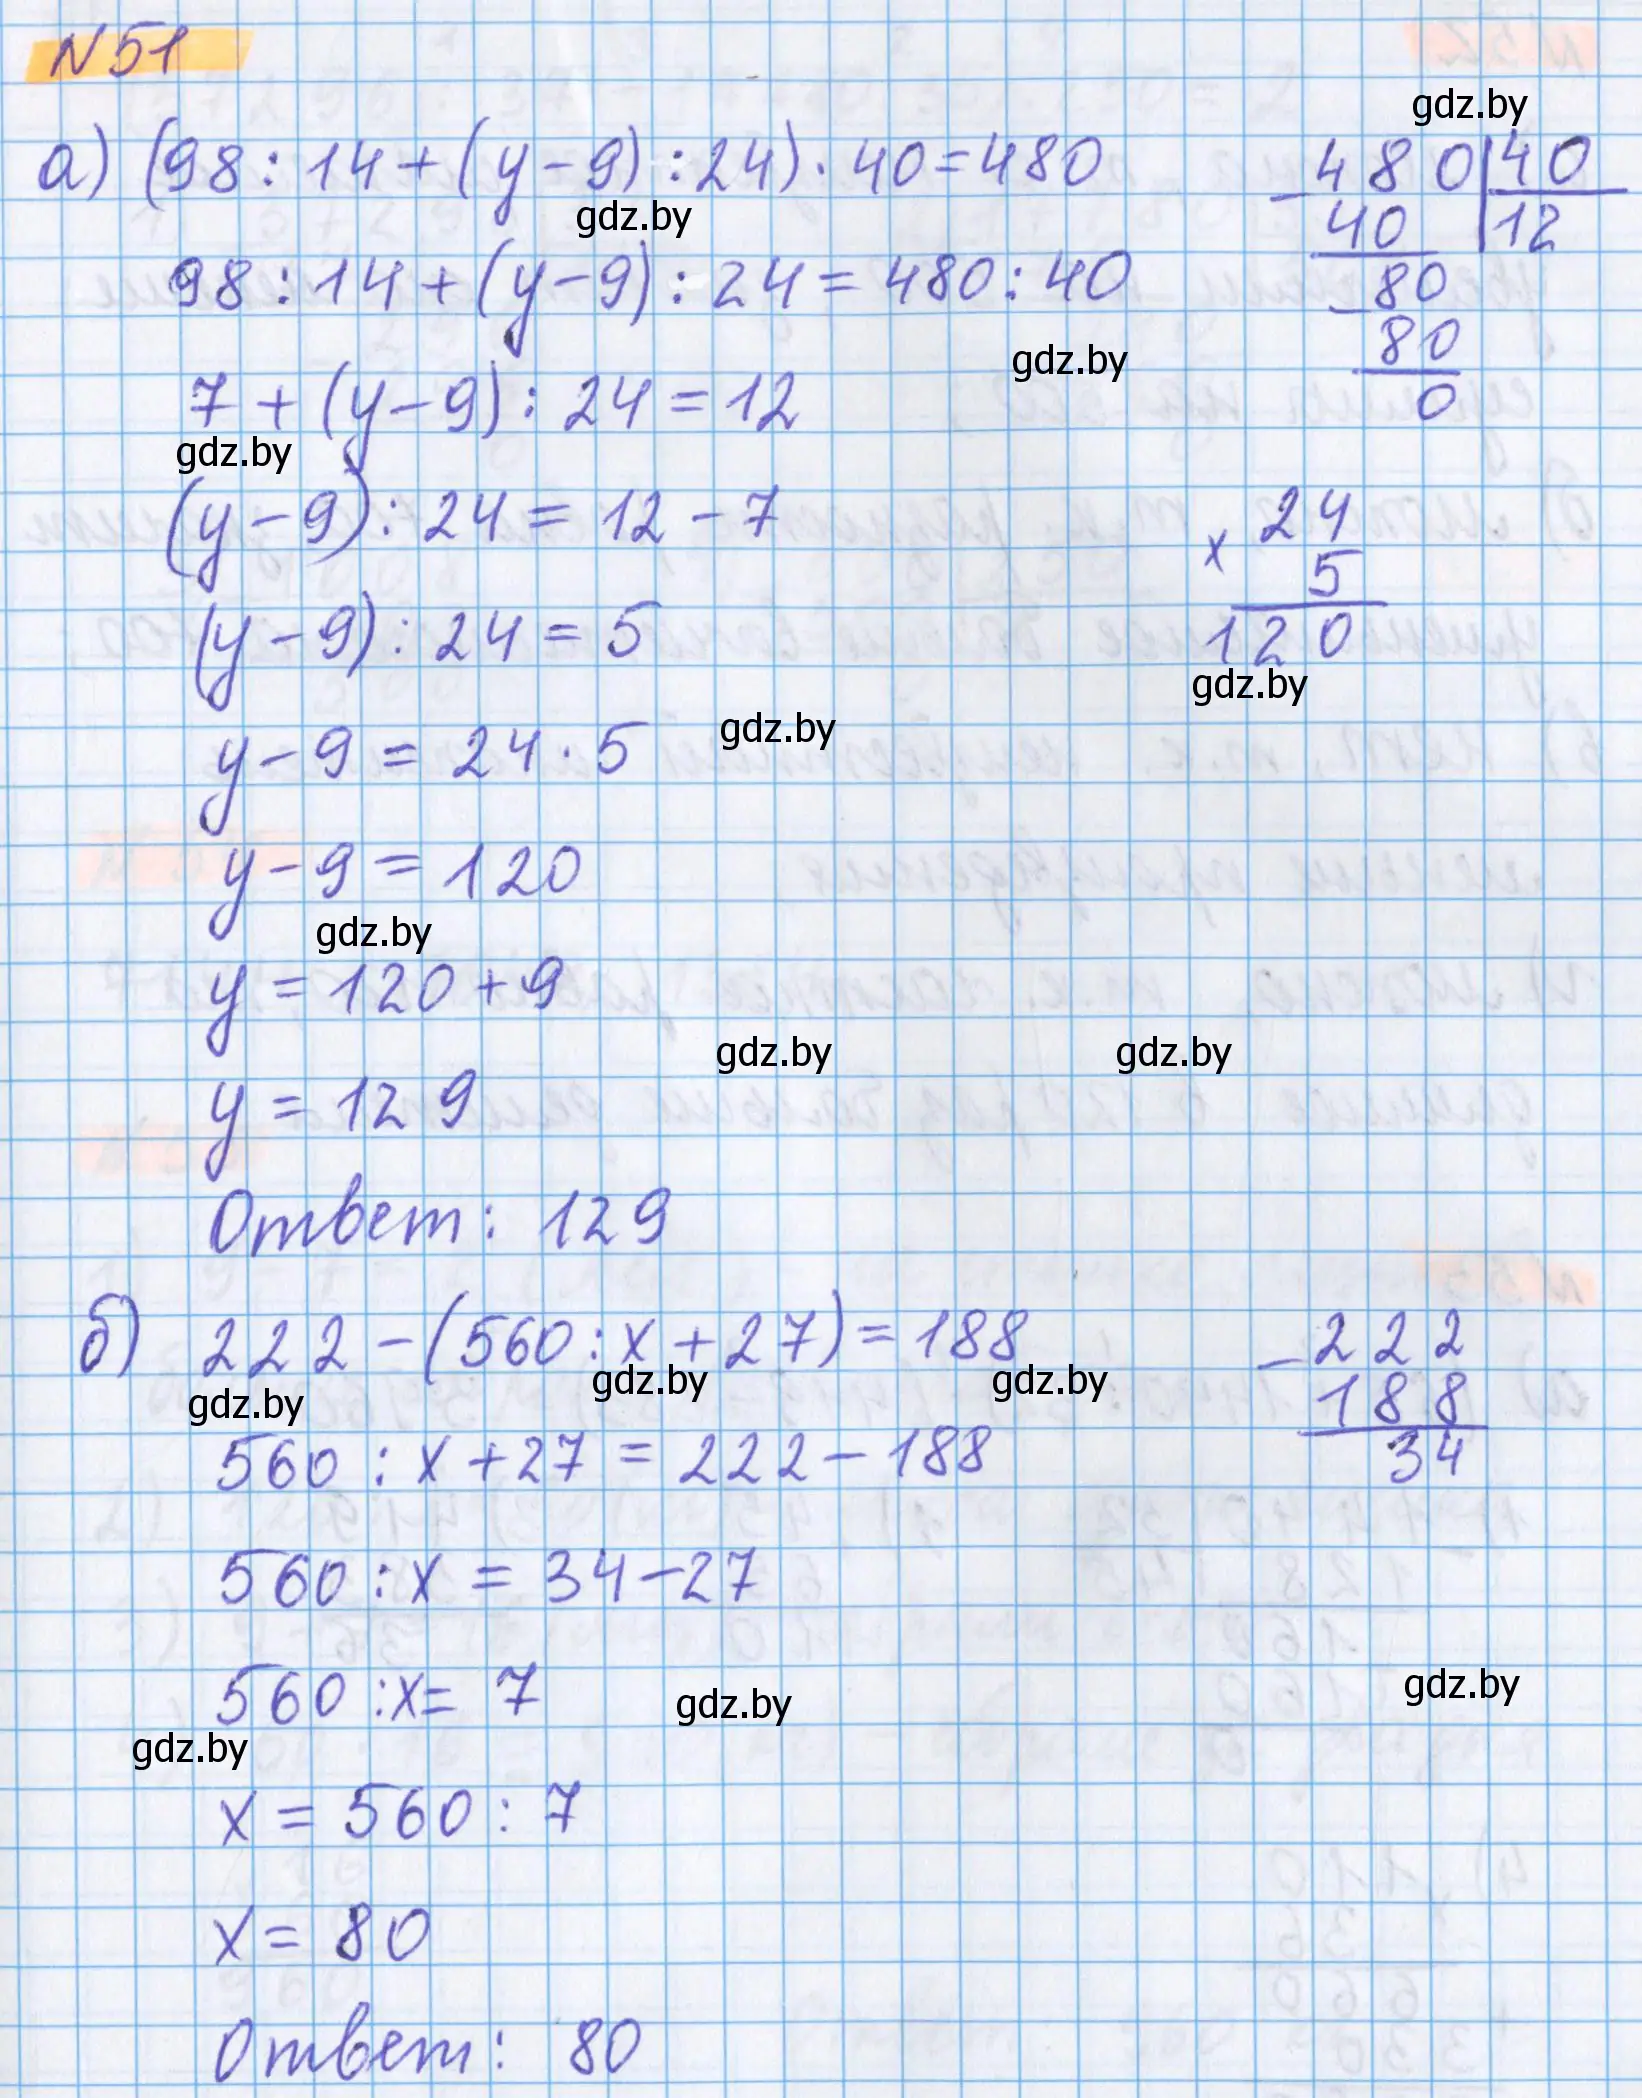 N51
а) (98 : 14 + (y - 9) : 24) · 40 = 480
gdz.by
gdz.by
98 : 14 + (y - 9) : 24 = 480 : 40
- 480 | 40
40 | 12
- 80
80
0
gdz.by
7 + (y - 9) : 24 = 12
gdz.by
(y - 9) : 24 = 12 - 7
× 24
5
120
gdz.by
(y - 9) : 24 = 5
gdz.by
y - 9 = 24 · 5
y - 9 = 120
gdz.by
y = 120 + 9
gdz.by gdz.by
y = 129
Ответ: 129
б) 222 - (560 : x + 27) = 188
gdz.by gdz.by gdz.by
- 222
188
34
560 : x + 27 = 222 - 188
560 : x = 34 - 27
560 : x = 7
gdz.by gdz.by
gdz.by
x = 560 : 7
x = 80
Ответ: 80